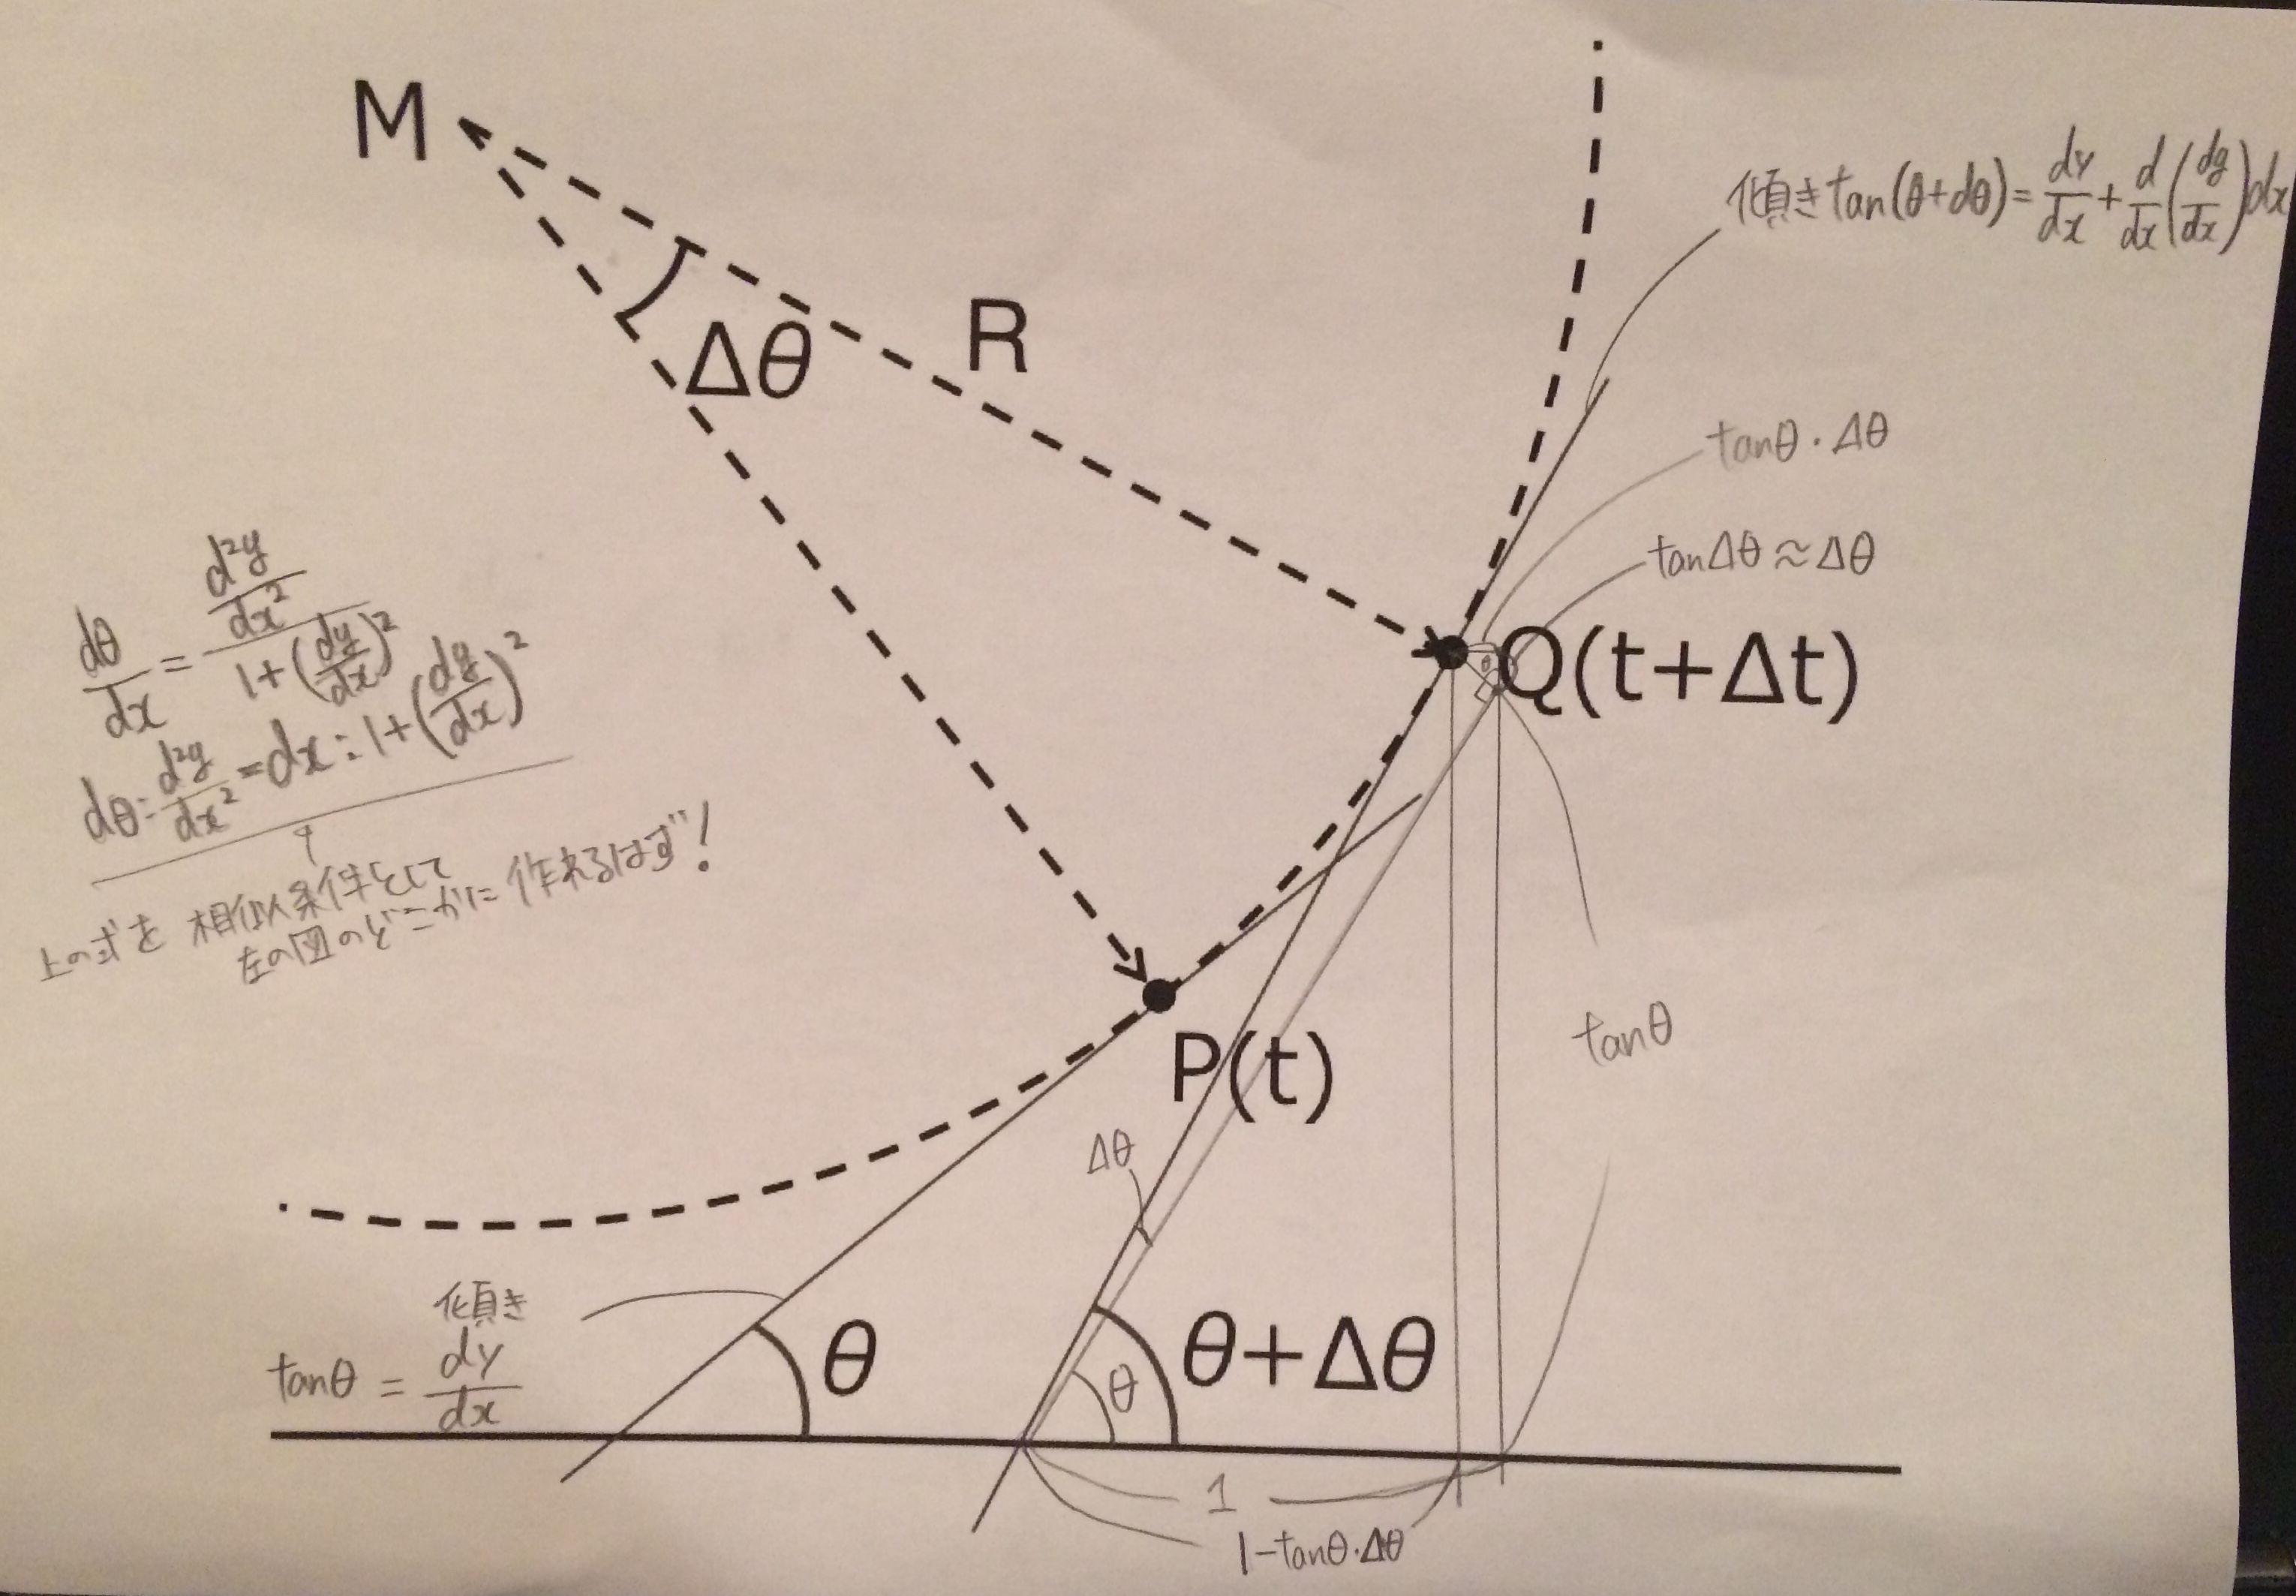 M
傾きtan(θ+dθ)=dy/dx+d/dx(dy/dx)dx
R
Δθ
tanθ・Δθ
tanΔθ≈Δθ
Q(t+Δt)
θ
dθ/dx=(d²y/dx²)/(1+(dy/dx)²)
dθ:d²y/dx²=dx:1+(dy/dx)²
上の式を 相似条件として
左の図のどこかに 作れるはず!
P(t)
tanθ
Δθ
傾き
tanθ=dy/dx
θ
θ+Δθ
θ
1
1-tanθ・Δθ